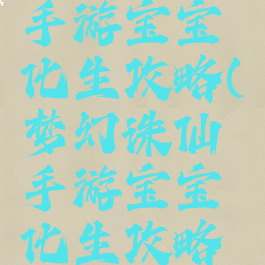 手游宝宝
化生攻略(
梦幻诛仙
手游宝宝
化生攻略